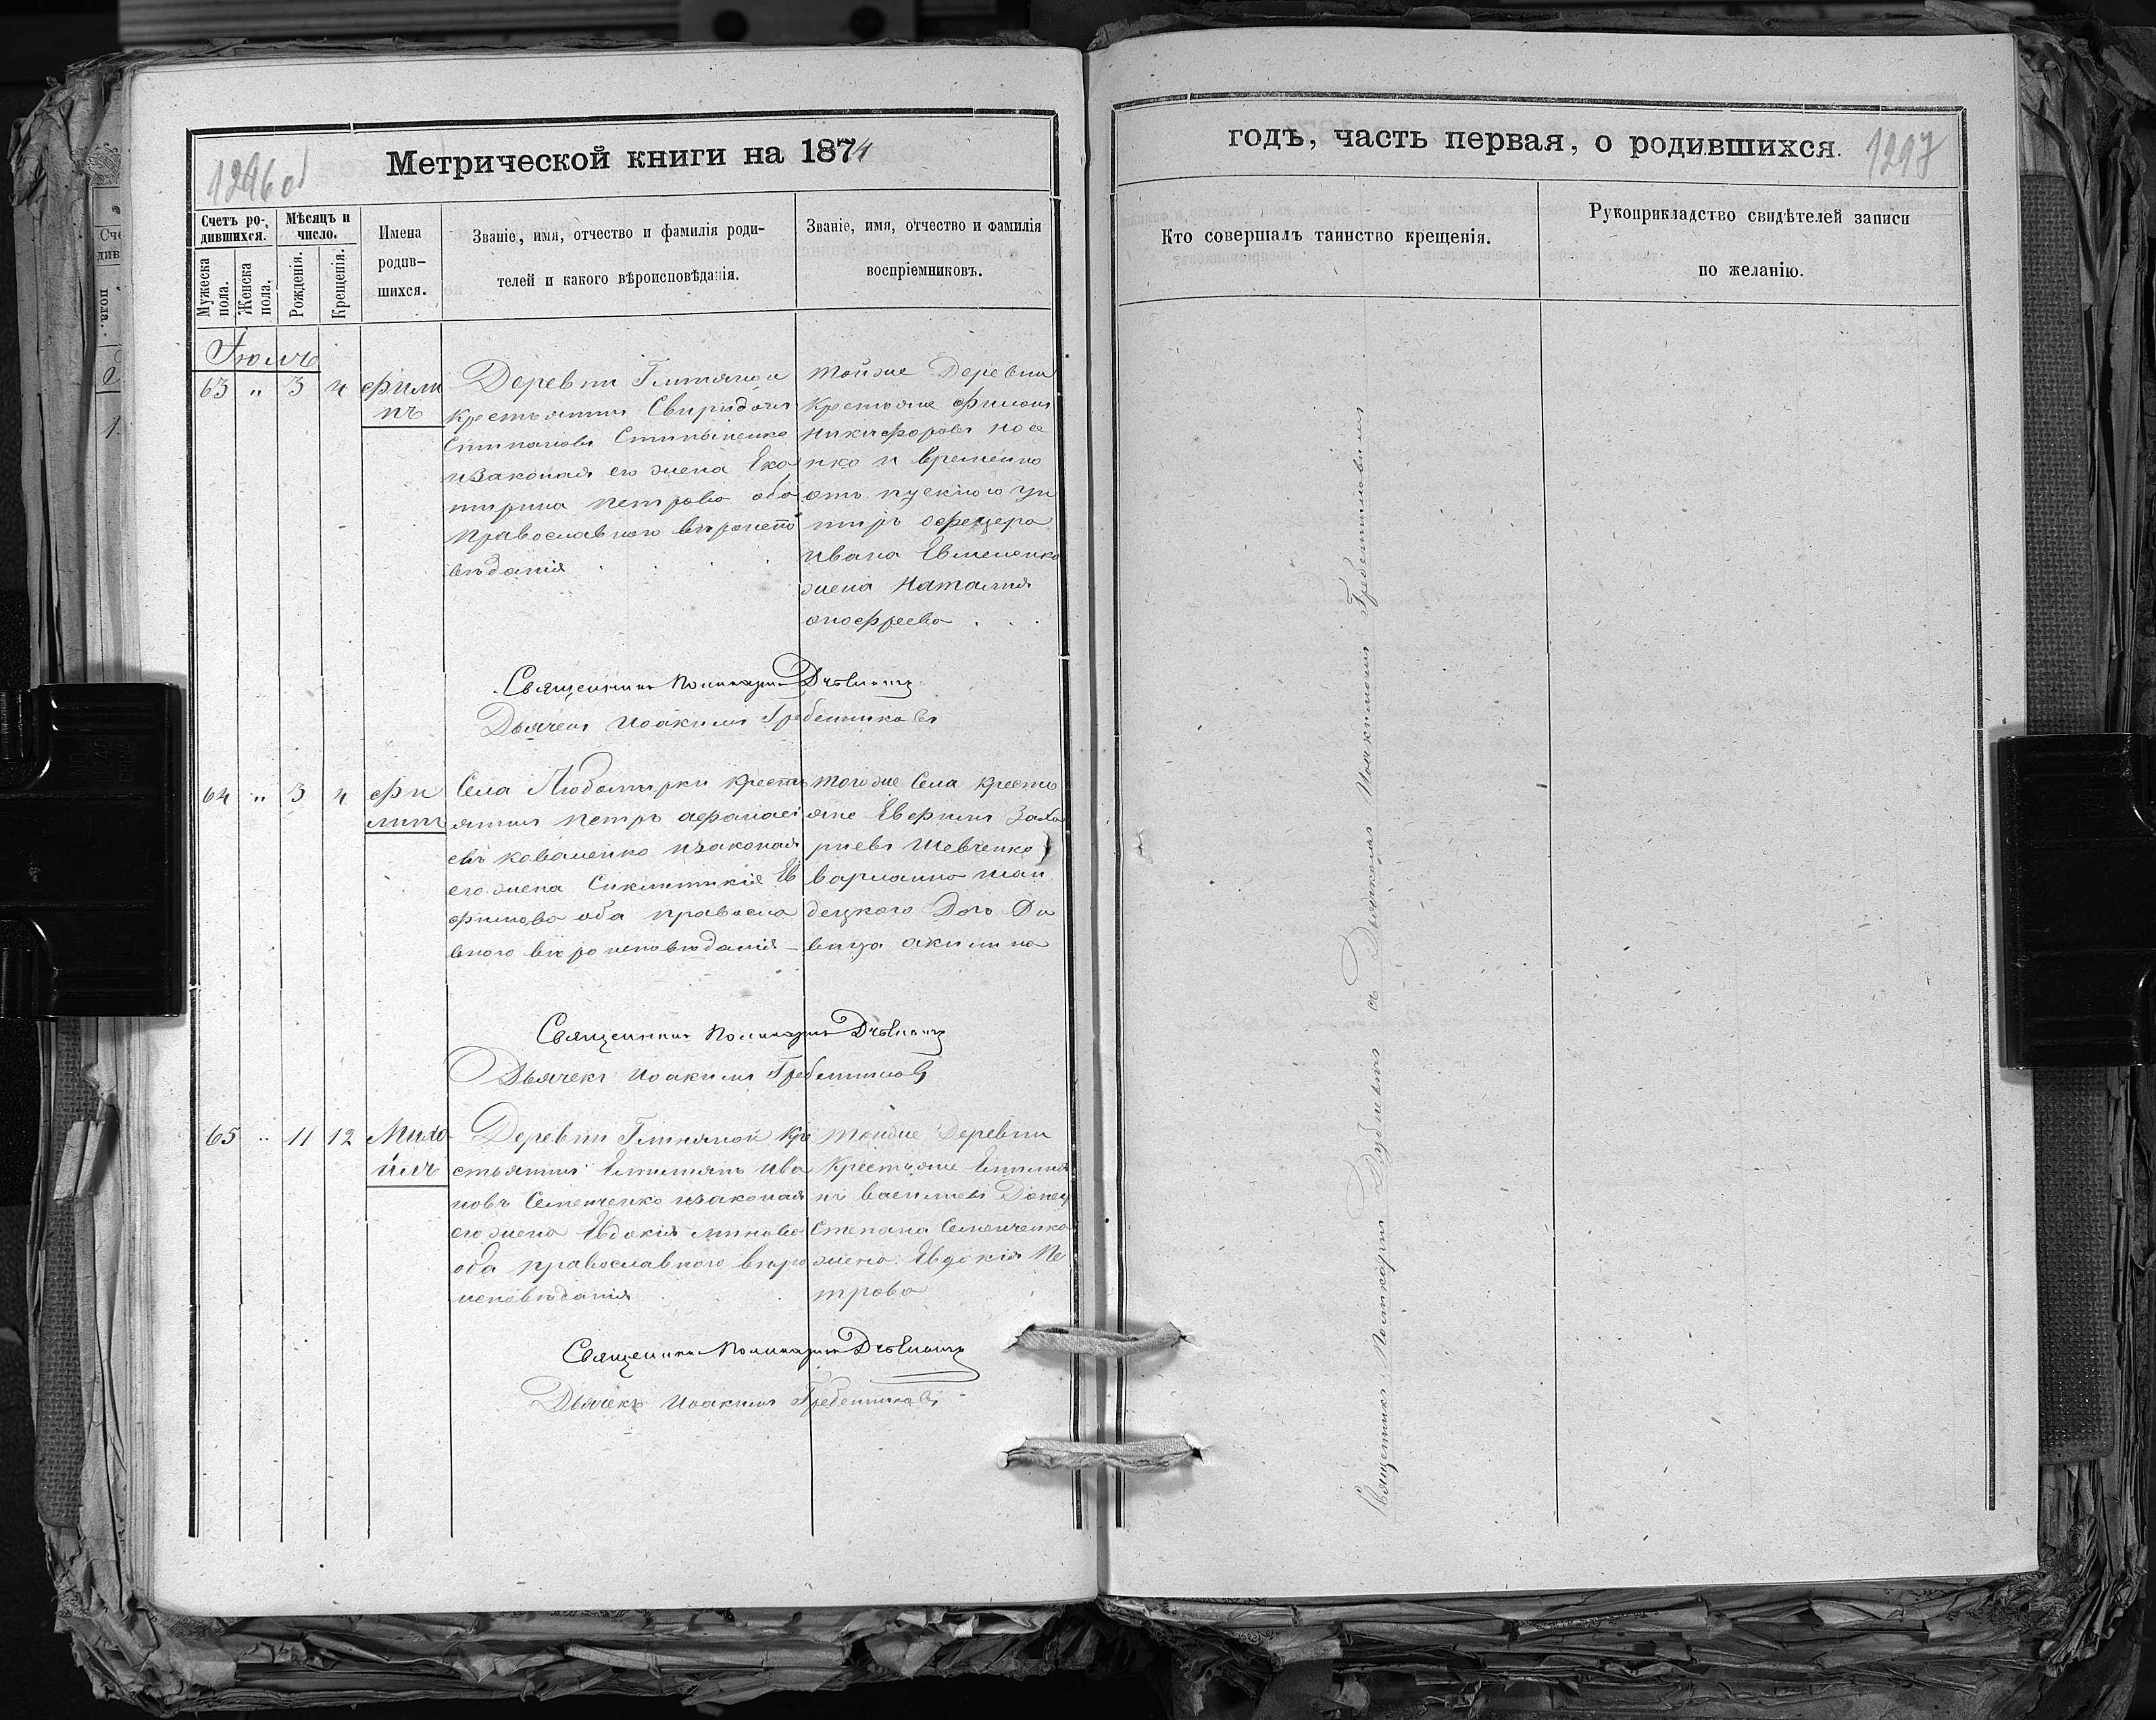 1296 об
Метрической книги на 1874
Счетъ ро-
дившихся.
Мѣсяцъ и
число.
Мужеска
пола.
Женска
пола.
Рожденія.
Крещенія.
Имена
родив-
шихся.
Званіе, имя, отчество и фамилія роди-
телей и какого вѣроисповѣданія.
Званіе, имя, отчество и фамилія
воспріемниковъ.
Іюль
63 „ 3 4 Фили
пъ
Деревни Глиняной
крестьянинъ Свиридонъ
Стипановъ
изаконая его жена Ека
тирина Петрова оба
Православного вѣроиспо
вѣданія
Тойже Деревни
Крестьяне Филипъ
Никифоровъ Носе
нко и временно
отпускного ун
тиръ офецера
Ивана Евмененка
жена Наталия
Онофреева
Священникъ Поликарпъ
Дьячекъ Иоакимъ Гребенниковъ
64 „ 3 4 Фи
липъ
Села Любомирки кресть
янинъ Петръ Афанасі
евъ Коваленко изаконая
его жена Сиклитикія Ев
фимова оба правосла
вного вѣроисповѣданія
Тогоже Села кресть
яне Евфимъ Заха
риевъ Шевченко
вица Акилина
Священникъ Поликарпъ
Дьячекъ Иоакимъ Гребенниковъ
65 „ 11 12 Миха
илъ
Деревни Глиняной кре
стьянинъ Емилианъ Ива
новъ Семенченко изаконая
его жена Евдокія
оба православного вѣро
исповѣданія
Тойже Деревни
Крестьяне Емилиа
нъ Василиевъ Донец
Степана Семенченка
жена Евдокія Пе
трова
Священникъ Поликарпъ
Дьячекъ Иоакимъ Гребенниковъ
годъ, часть первая, о родившихся.
1297
Кто совершалъ таинство крещенія.
Рукоприкладство свидѣтелей записи
по желанію.
Священникъ Поликарпъ съ Дьячкомъ Иоакимомъ Гребенниковымъ